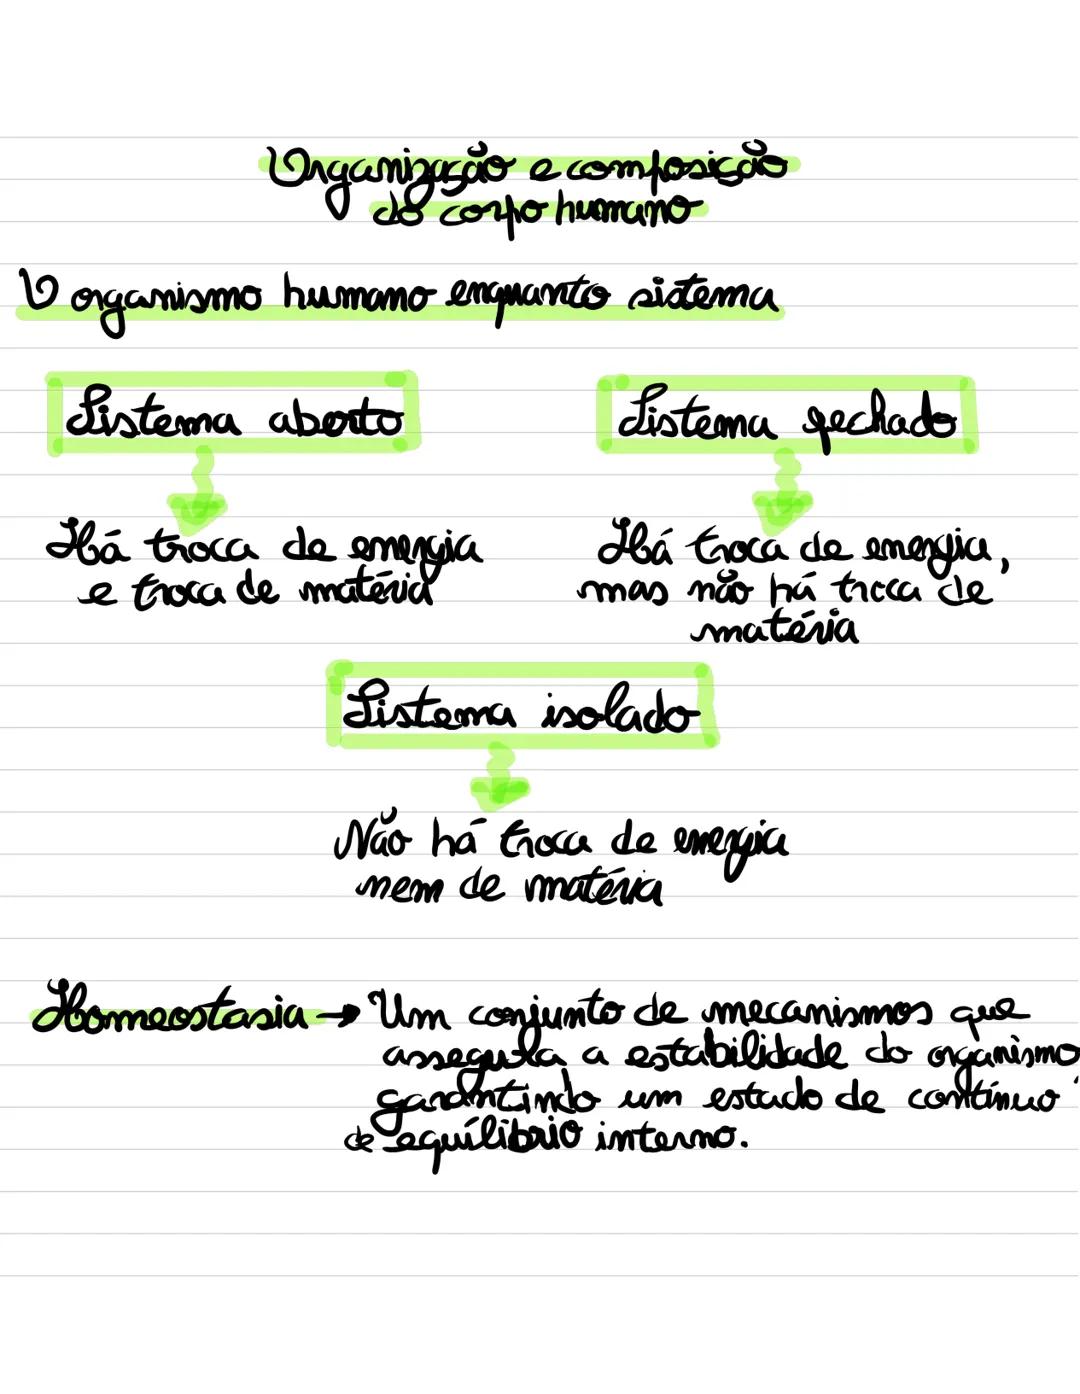 Organização e composição
do corpo humano
O organismo humano enquanto sistema
Sistema aberto
Sistema fechado
Há troca de energia
e troca de matéria
Há troca de energia,
mas não há troca de
matéria
Sistema isolado
Não há troca de energia
nem de matéria
Homeostasia → Um conjunto de mecanismos que
assegura a estabilidade do organismo,
garantindo um estado de contínuo
de equílibrio interno.